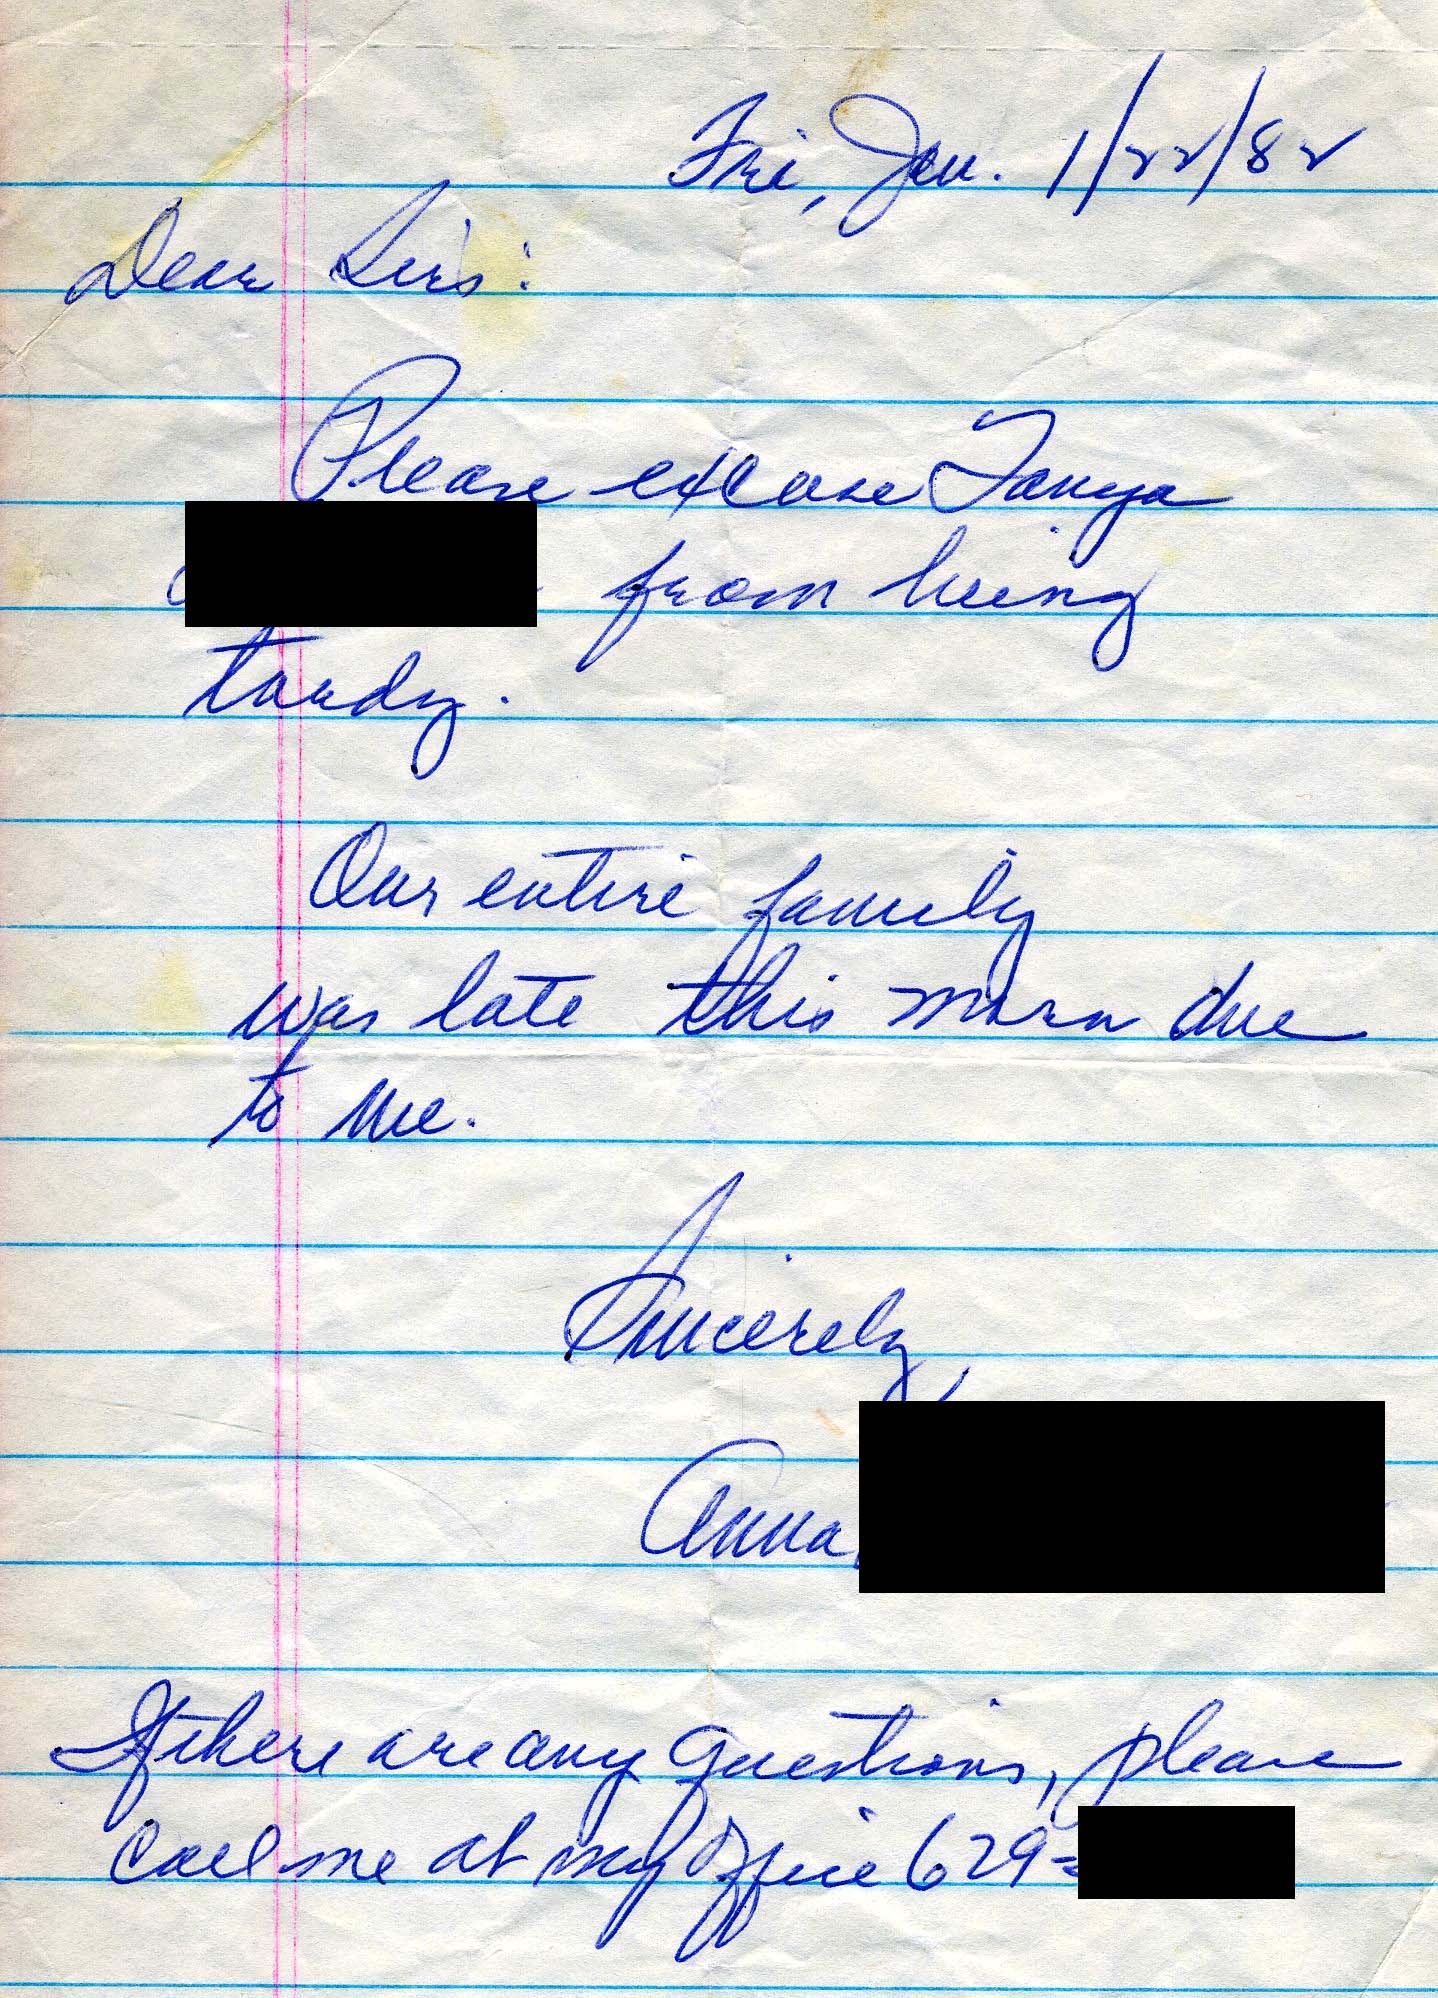 Fri, Jan. 1/22/82
Dear Sirs:
Please excuse Tanya
from being
tardy.
Our entire family
was late this morn due
to me.
Sincerely,
Anna
If there are any questions, please
call me at my office 629-